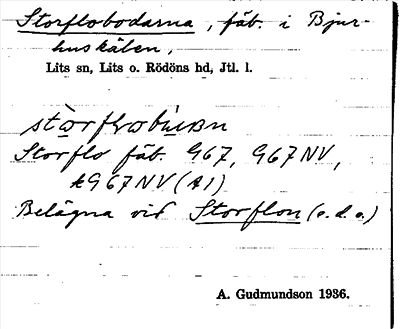 Storflobodarna, fäb. i Bjur-
huskälen,
Lits sn, Lits o. Rödöns hd, Jtl. l.
Storflo fäb. G67, G67NV,
kG67NV (A1)
Belägna vid Storflon (o.d.o.)
A. Gudmundson 1936.